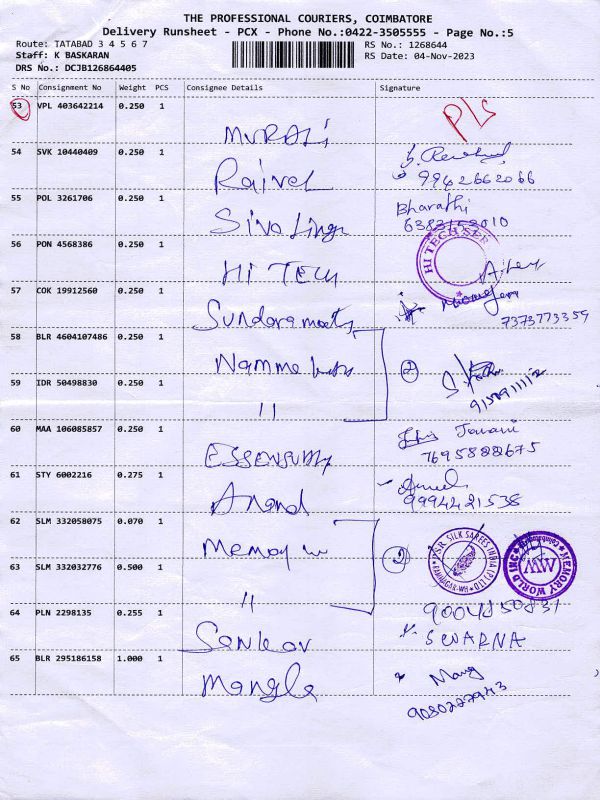 THE PROFESSIONAL COURIERS, COIMBATORE
Delivery Runsheet - PCX - Phone No.:0422-3505555 - Page No.:5
Route: TATABAD 3 4 5 6 7
RS No.: 1268644
Staff: K BASKARAN
RS Date: 04-Nov-2023
DRS No.: DCJB126864405
S No Consignment No Weight PCS Consignee Details Signature
53 VPL 403642214 0.250 1 MURALi PLS
54 SVK 10440409 0.250 1 Raivel 9942662066
55 POL 3261706 0.250 1 Siva Linga Bharathi
56 PON 4568386 0.250 1 HI TECH HI TECH SER
57 COK 19912560 0.250 1 Sundara 7373773359
58 BLR 4604107486 0.250 1 Namme 2
59 IDR 50498830 0.250 1 "
60 MAA 106085857 0.250 1 Janani
7695888675
61 STY 6002216 0.275 1 Anand 9994421538
62 SLM 332058075 0.070 1 2 PSR SILK SAREES INDIA (P) LTD MEMORY WORLD INC MW
63 SLM 332032776 0.500 1 "
64 PLN 2298135 0.255 1 Sankar SWARNA
65 BLR 295186158 1.000 1 Mangla Mang
9080227943